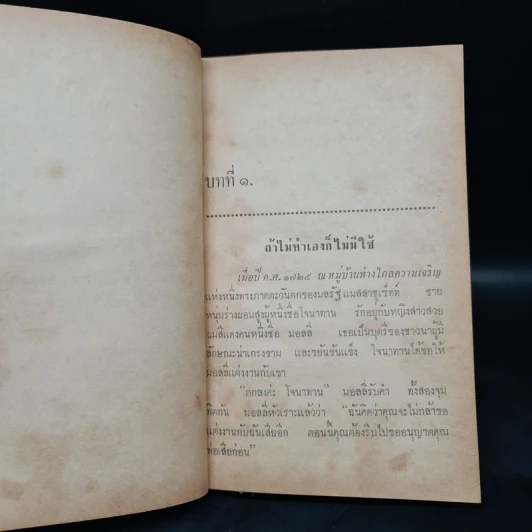 บทที่ ๑.
ถ้าไม่ทำเองก็ไม่มีใช้
เมื่อปี ค.ศ. ๑๗๒๕ ณ หมู่บ้านห่างไกลความเจริญ
แห่งหนึ่งทางภาคตะวันตกของมลรัฐแมสสาชูเซ็ตท์ ชาย
หนุ่มร่างผอมสูงผู้หนึ่งชื่อโจนาทาน รักอยู่กับหญิงสาวสวย
ผมสีแดงคนหนึ่งชื่อ มอลลี่ เธอเป็นบุตรีของชาวนาผู้มี
ลักษณะน่าเกรงขาม และขยันขันแข็ง โจนาทานได้ขอให้
มอลลี่แต่งงานกับเขา
"ตกลงค่ะ โจนาทาน" มอลลี่รับคำ ทั้งสองจุม
พิตกัน มอลลี่หัวเราะแล้วว่า "ฉันคิดว่าคุณจะไม่กล้าขอ
แต่งงานกับฉันเสียอีก ตอนนี้คุณต้องรีบไปขออนุญาตคุณ
พ่อเสียก่อน"